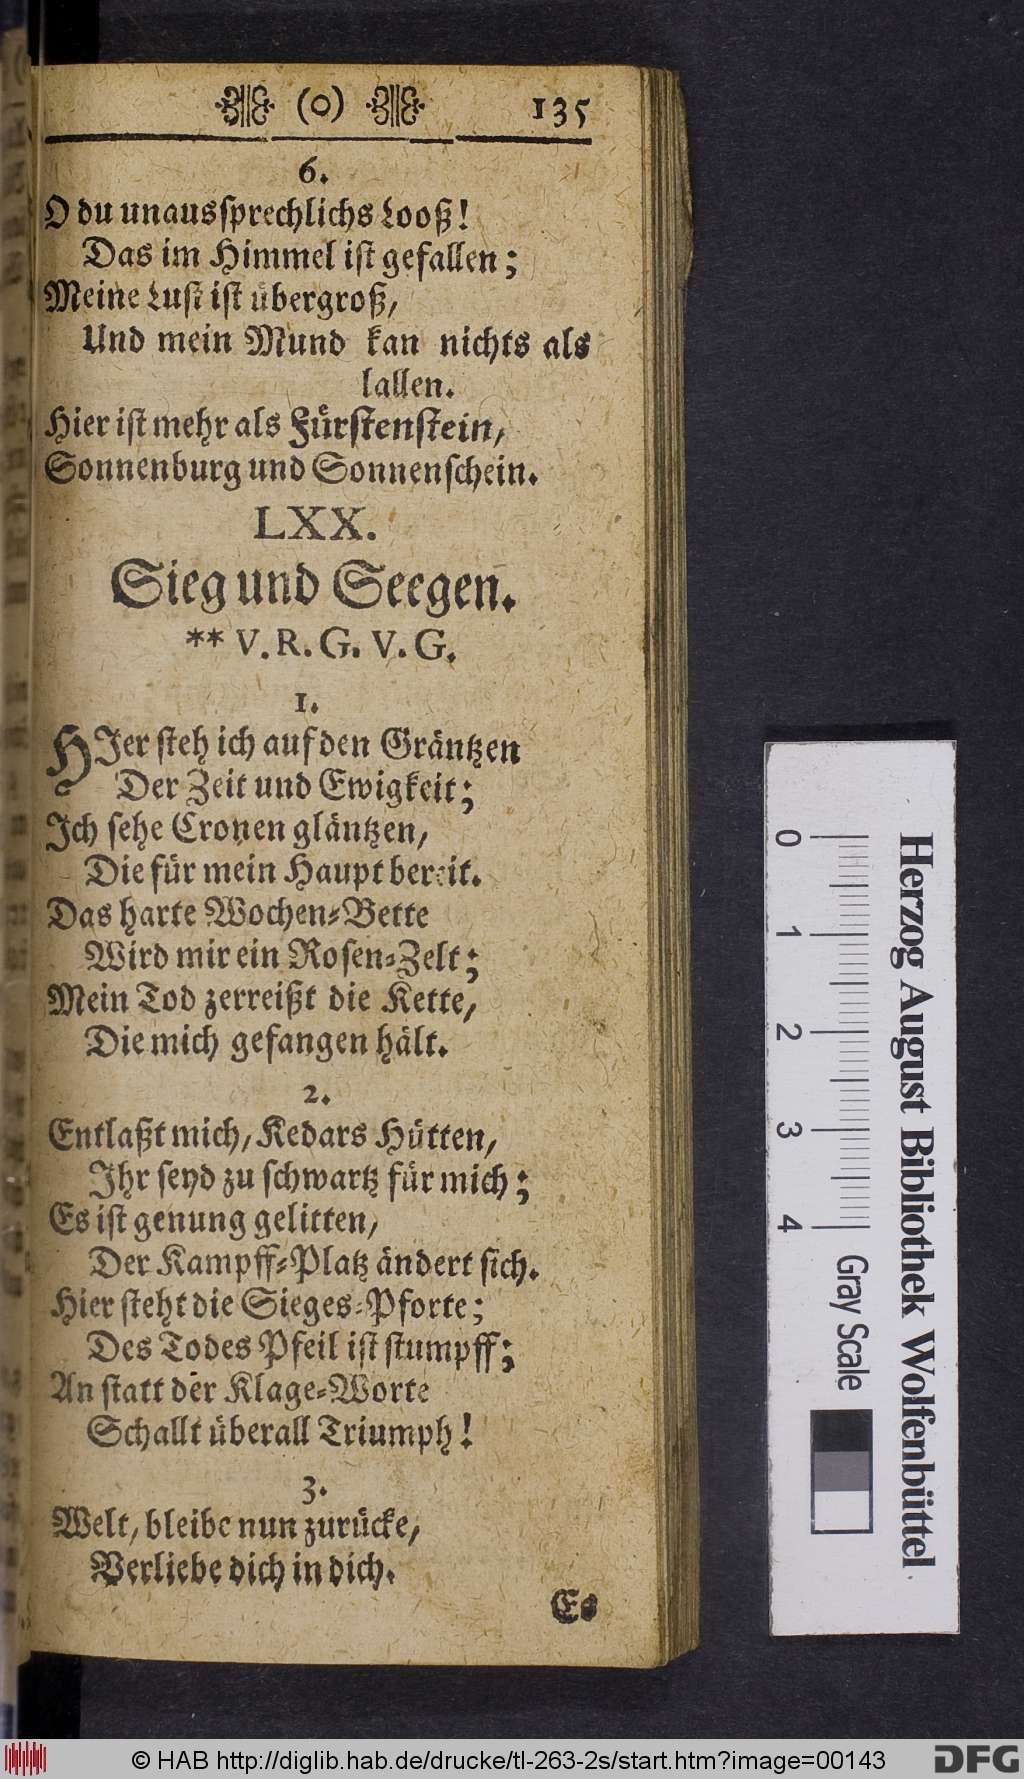 (o) 135
6.
O du unaussprechlichs Looß!
Das im Himmel ist gefallen;
Meine Lust ist übergroß,
Und mein Mund kan nichts als
lallen.
Hier ist mehr als Fürstenstein,
Sonnenburg und Sonnenschein.
LXX.
Sieg und Seegen.
** V. R. G. V. G.
1.
HJer steh ich auf den Gräntzen
Der Zeit und Ewigkeit;
Jch sehe Cronen gläntzen,
Die für mein Haupt bereit.
Das harte Wochen-Bette
Wird mir ein Rosen-Zelt;
Mein Tod zerreißt die Kette,
Die mich gefangen hält.
2.
Entlaßt mich, Kedars Hütten,
Jhr seyd zu schwartz für mich;
Es ist genung gelitten,
Der Kampff-Platz ändert sich.
Hier steht die Sieges-Pforte;
Des Todes Pfeil ist stumpff;
An statt der Klage-Worte
Schallt überall Triumph!
3.
Welt, bleibe nun zurücke,
Verliebe dich in dich.
Es
0 1 2 3 4 Gray Scale
Herzog August Bibliothek Wolfenbüttel
© HAB http://diglib.hab.de/drucke/tl-263-2s/start.htm?image=00143
DFG